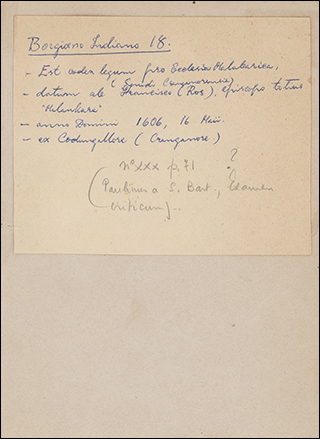 Borgiano Indiano 18.
- Est codex legum pro Ecclesia Malabarica,
(Synodi Cranganorensis)
- datum ab Francisco (Ros), episcopo totius
"Malankara"
- anno Domini 1606, 16 Maii.
- ex Codungallore (Cranganore.)
n° xxx p. 71 ?
(Paulinus a S. Bart., Examen
criticum)..